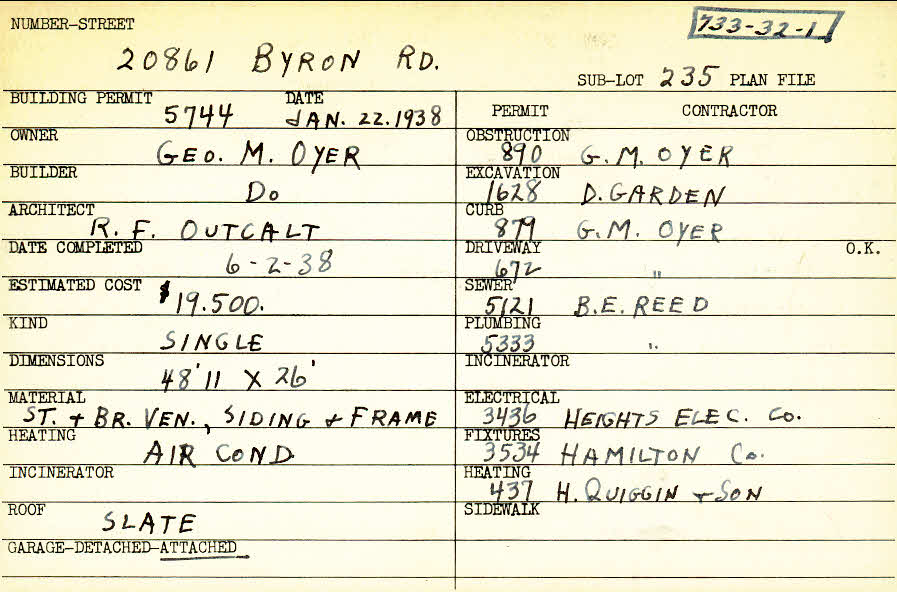 NUMBER-STREET
733-32-1
20861 BYRON RD.
SUB-LOT 235 PLAN FILE
BUILDING PERMIT 5744 DATE JAN. 22. 1938
OWNER GEO. M. OYER
BUILDER DO
ARCHITECT R. F. OUTCALT
DATE COMPLETED 6-2-38
ESTIMATED COST $19.500.
KIND SINGLE
DIMENSIONS 48'11 X 26'
MATERIAL ST. + BR. VEN., SIDING + FRAME
HEATING AIR COND
INCINERATOR
ROOF SLATE
GARAGE-DETACHED-ATTACHED
PERMIT CONTRACTOR
OBSTRUCTION 890 G. M. OYER
EXCAVATION 1628 D. GARDEN
CURB 879 G. M. OYER
DRIVEWAY 672 " O.K.
SEWER 5121 B. E. REED
PLUMBING 5333 "
INCINERATOR
ELECTRICAL 3436 HEIGHTS ELEC. CO.
FIXTURES 3534 HAMILTON CO.
HEATING 437 H. QUIGGIN + SON
SIDEWALK